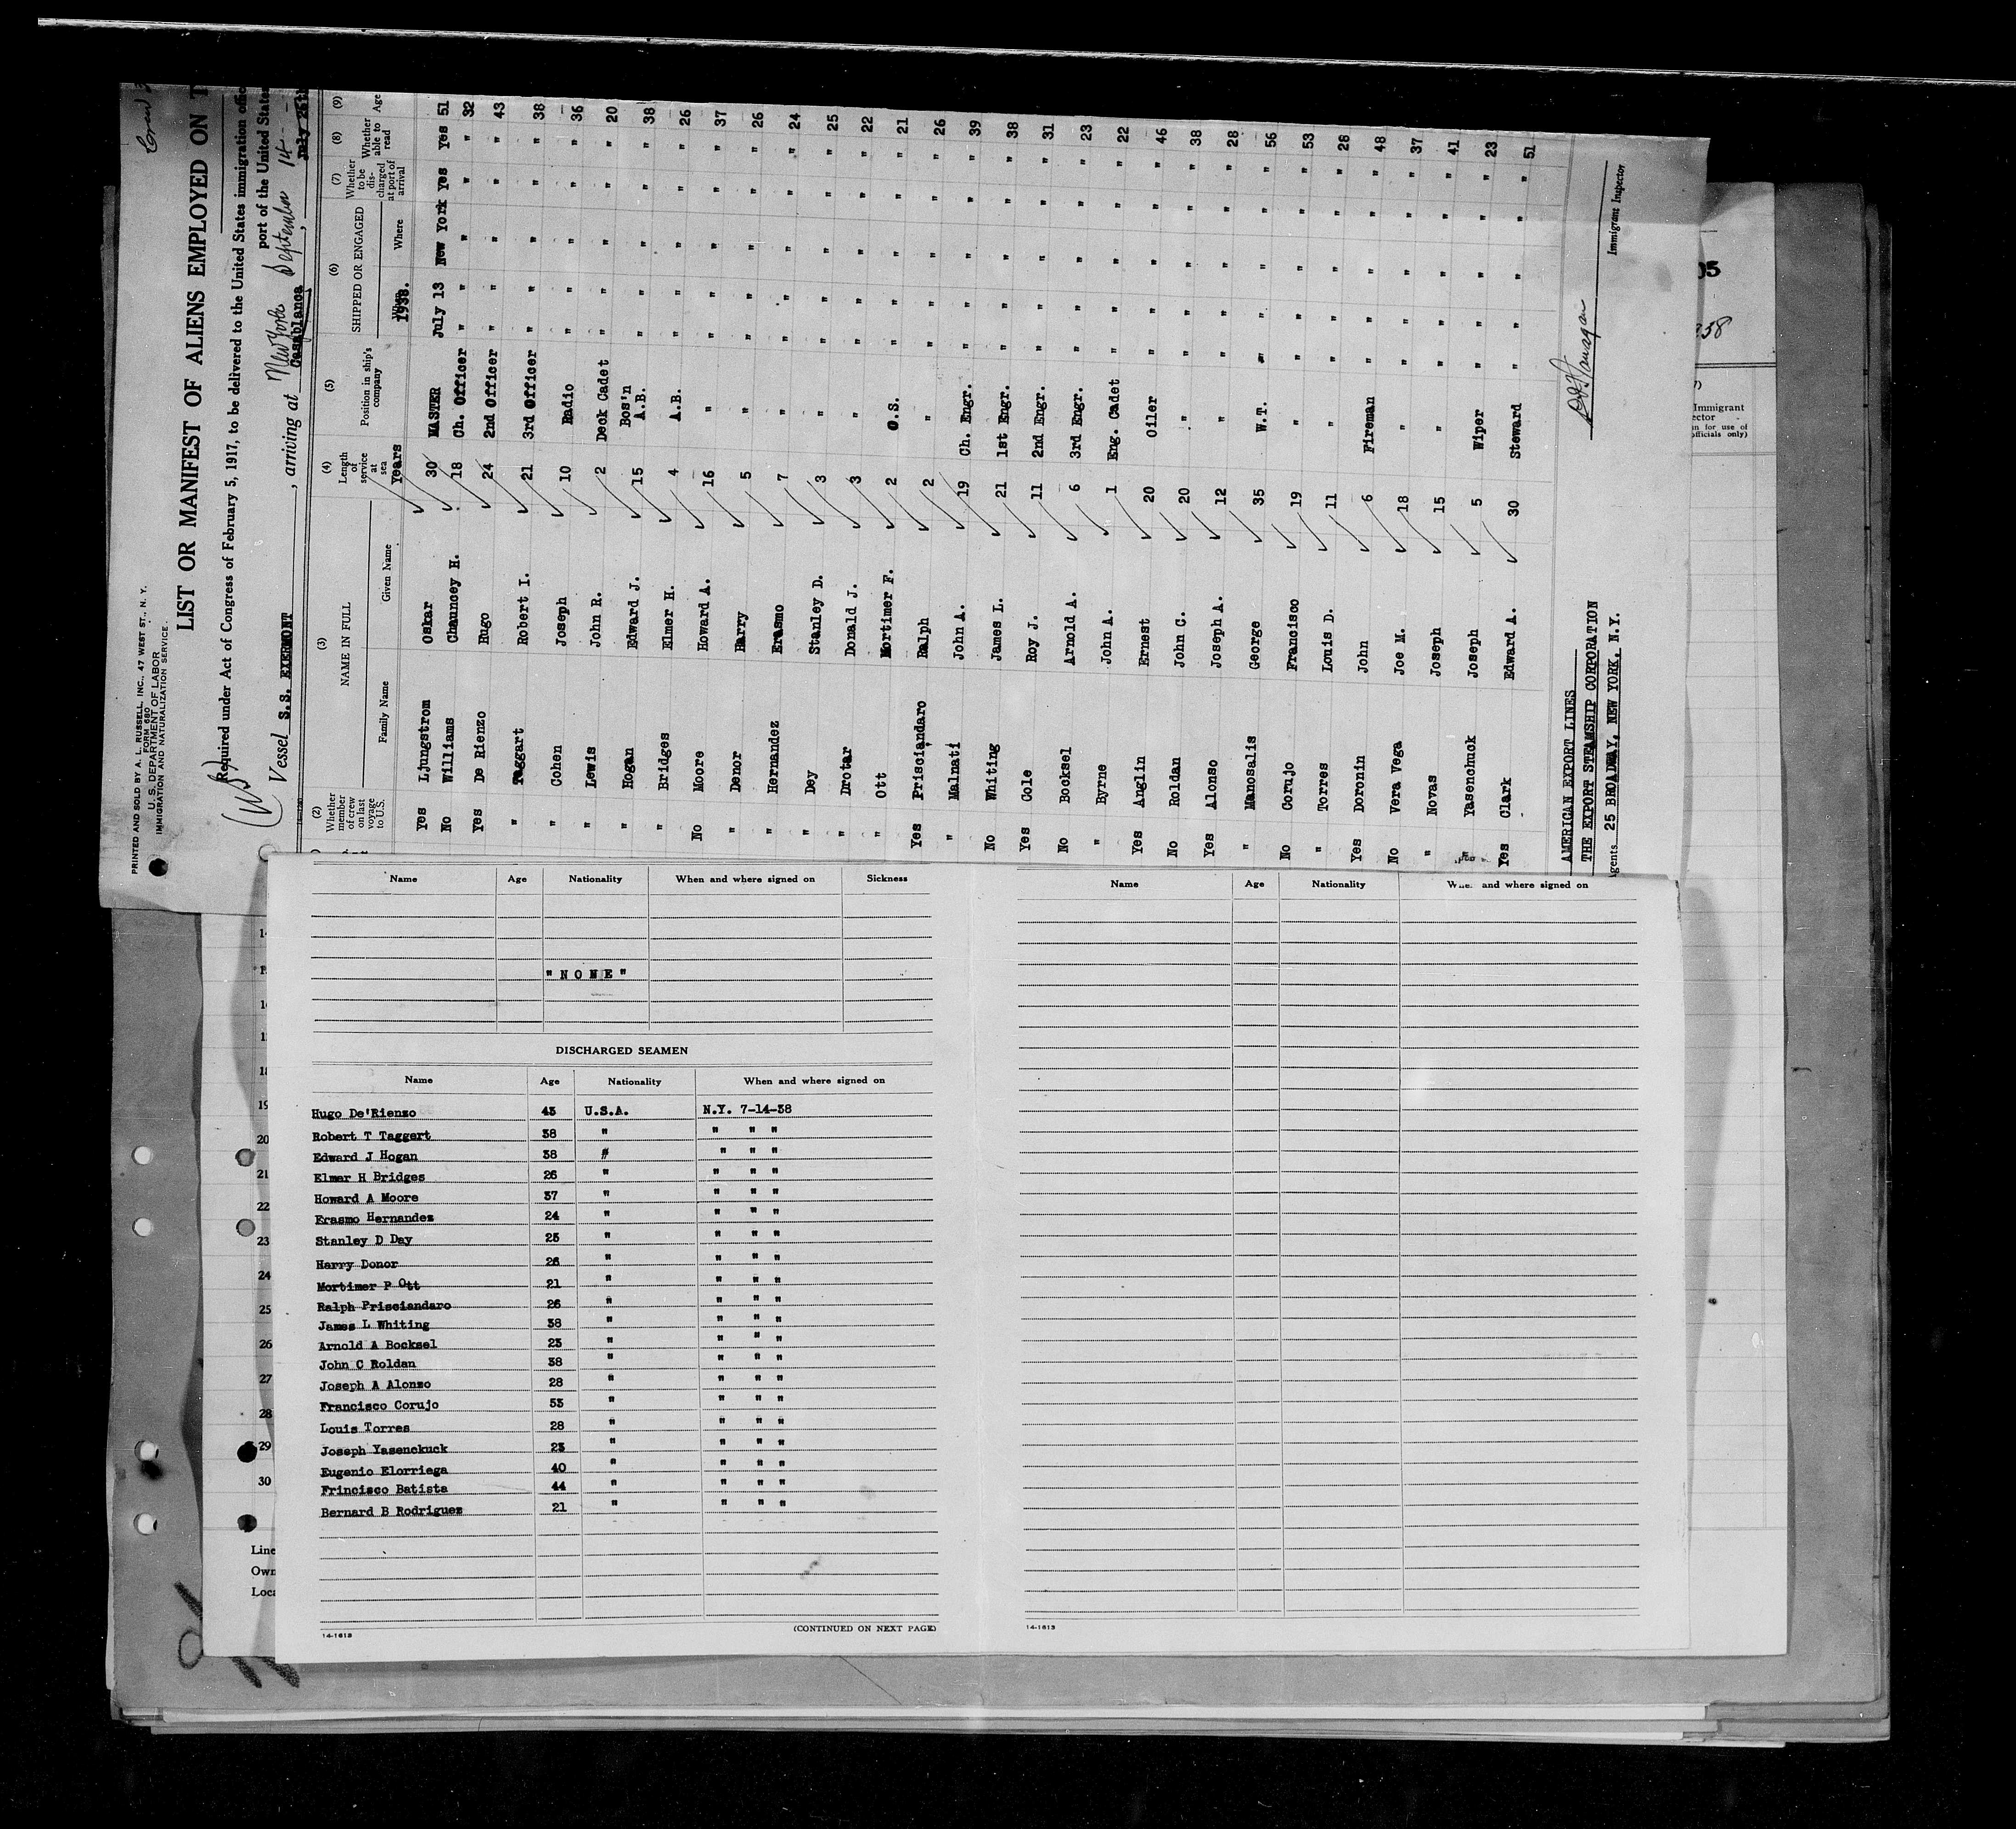 PRINTED AND SOLD BY A. L. RUSSELL, INC., 47 WEST ST., N. Y.
FORM 680
U. S. DEPARTMENT OF LABOR
IMMIGRATION AND NATURALIZATION SERVICE
LIST OR MANIFEST OF ALIENS EMPLOYED ON T
Required under Act of Congress of February 5, 1917, to be delivered to the United States immigration offic
port of the United States
Vessel S.S. EXERMONT, arriving at New York September 14
Casablanca July 25th
(2) (3) (4) (5) (6) (7) (8) (9)
Whether member of crew on last voyage to U.S. NAME IN FULL Length of service at sea Position in ship's company SHIPPED OR ENGAGED Whether to be discharged at port of arrival Whether able to read Age
Family Name Given Name Years When Where
1938.
Yes Ljungstrom Oskar 30 MASTER July 13 New York Yes Yes 51
No Williams Chauncey H. 18 Ch. Officer " " " " " 32
Yes De Rienzo Hugo 24 2nd Officer " " " " " 43
" Taggart Robert I. 21 3rd Officer " " " " " 38
" Cohen Joseph 10 Radio " " " " " 36
" Lewis John R. 2 Deck Cadet " " " " " 20
" Hogan Edward J. 15 Bos'n A.B. " " " " " 38
" Bridges Elmer H. 4 A.B. " " " " " 26
No Moore Howard A. 16 " " " " " " 37
" Denor Harry 5 " " " " " " 26
" Hernandez Erasmo 7 " " " " " " 24
" Dey Stanley D. 3 " " " " " " 25
" Drotar Donald J. 3 " " " " " " 22
" Ott Mortimer F. 2 O.S. " " " " " 21
Yes Prisciandaro Ralph 2 " " " " " " 26
" Malnati John A. 19 Ch. Engr. " " " " " 39
No Whiting James L. 21 1st Engr. " " " " " 38
Yes Cole Roy J. 11 2nd Engr. " " " " " 31
No Bocksel Arnold A. 6 3rd Engr. " " " " " 23
" Byrne John A. 1 Eng. Cadet " " " " " 22
Yes Anglin Ernest 20 Oiler " " " " " 46
No Roldan John C. 20 " " " " " " 38
Yes Alonso Joseph A. 12 " " " " " " 28
" Manosalis George 35 W.T. " " " " " 56
No Corujo Francisco 19 " " " " " " 53
" Torres Louis D. 11 " " " " " " 28
Yes Doronin John 6 Fireman " " " " " 48
No Vera Vega Joe M. 18 " " " " " " 37
" Novas Joseph 15 " " " " " " 41
" Yasenchuck Joseph 5 Wiper " " " " " 23
Yes Clark Edward A. 30 Steward " " " " " 51
AMERICAN EXPORT LINES
THE EXPORT STEAMSHIP CORPORATION
Agents 25 BROADWAY, NEW YORK, N.Y.
Immigrant Inspector
Immigrant
ector
n for use of
officials only)
Name Age Nationality When and where signed on Sickness
"NONE"
DISCHARGED SEAMEN
Name Age Nationality When and where signed on
Hugo De'Rienzo 43 U.S.A. N.Y. 7-14-38
Robert T Taggert 38 " " " "
Edward J Hogan 38 " " " "
Elmer H Bridges 26 " " " "
Howard A Moore 37 " " " "
Erasmo Hernandez 24 " " " "
Stanley D Day 25 " " " "
Harry Donor 26 " " " "
Mortimer P Ott 21 " " " "
Ralph Prisciandaro 26 " " " "
James L Whiting 38 " " " "
Arnold A Bocksel 23 " " " "
John C Roldan 38 " " " "
Joseph A Alonzo 28 " " " "
Francisco Corujo 53 " " " "
Louis Torres 28 " " " "
Joseph Yasenckuck 23 " " " "
Eugenio Elorriega 40 " " " "
Frincisco Batista 44 " " " "
Bernard B Rodriguez 21 " " " "
14-1612
(CONTINUED ON NEXT PAGE)
Name Age Nationality When and where signed on
14-1613
19
20
21
22
23
24
25
26
27
28
29
30
Line
Own
Loca